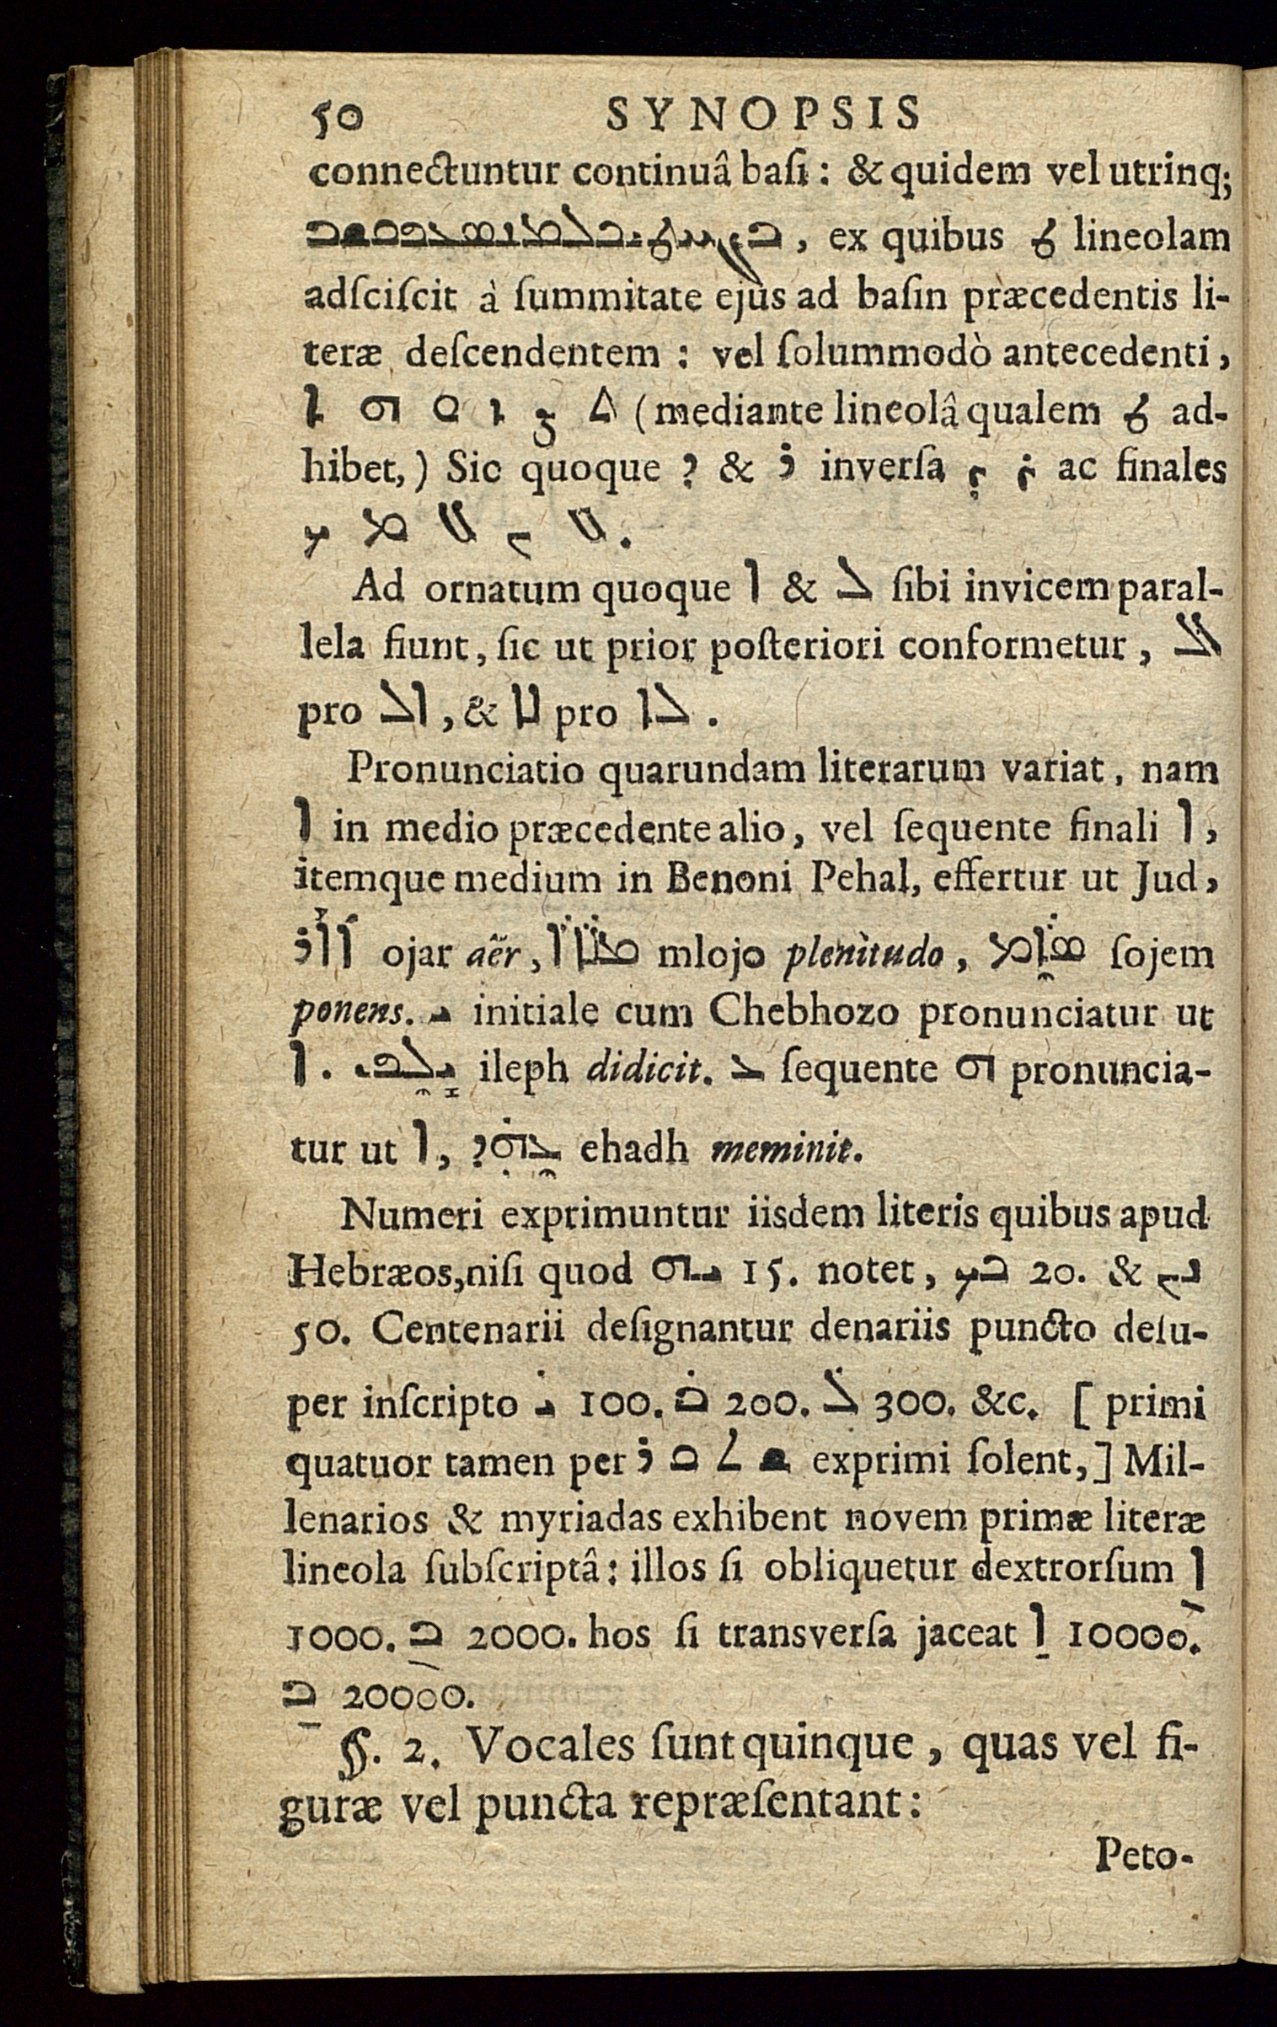 50 SYNOPSIS
connectuntur continuâ baſi: & quidem vel utrinq;
, ex quibus ܛ lineolam
adſciſcit à ſummitate ejus ad baſin præcedentis li-
teræ deſcendentem : vel ſolummodò antecedenti,
ܐ ܗ ܘ ܙ ܨ ܬ (mediante lineolâ qualem ܛ ad-
hibet,) Sic quoque ܕ & ܪ inverſa ac finales
ܟ ܡ ܠ ܢ ܥ.
Ad ornatum quoque ܐ & ܠ ſibi invicem paral-
lela fiunt, ſic ut prior poſteriori conformetur, ܠܐ
pro ܠܐ, & ܐܠ pro ܐܠ.
Pronunciatio quarundam literarum variat, nam
ܐ in medio præcedente alio, vel ſequente finali ܐ,
itemque medium in Benoni Pehal, effertur ut Jud,
ܐܐܪ ojar aër, ܡܠܐܐ mlojo plenitudo, ܣܐܡ ſojem
ponens. ܝ initiale cum Chebhozo pronunciatur ut
ܐ. ܝܠܦ ileph didicit. ܥ ſequente ܗ pronuncia-
tur ut ܐ, ܥܗܕ ehadh meminit.
Numeri exprimuntur iisdem literis quibus apud
Hebræos, niſi quod ܝܗ 15. notet, ܟܟ 20. & ܢܢ
50. Centenarii deſignantur denariis puncto deſu-
per inſcripto ܝ̇ 100. ܟ̇ 200. ܠ̇ 300. &c. [ primi
quatuor tamen per ܩ ܪ ܫ ܬ exprimi ſolent,] Mil-
lenarios & myriadas exhibent novem primæ literæ
lineola ſubſcriptâ: illos ſi obliquetur dextrorſum ܐ
1000. ܒ 2000. hos ſi transverſa jaceat ܐ 10000.
ܒ 20000.
§. 2. Vocales ſunt quinque, quas vel fi-
guræ vel puncta repræſentant:
Peto-